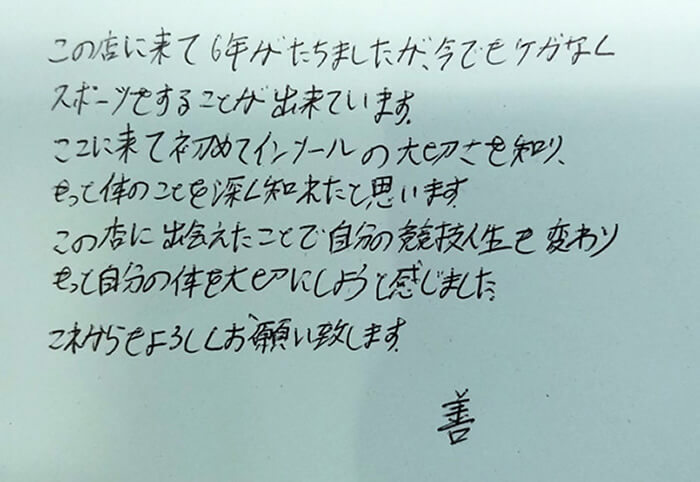 この店に来て6年がたちましたが、今でもケガなく
スポーツをすることが出来ています。
ここに来て初めてインソールの大切さを知り、
もっと体のことを深く知れたと思います。
この店に出会えたことで自分の競技人生も変わり
もっと自分の体を大切にしようと感じました。
これからもよろしくお願い致します。
善